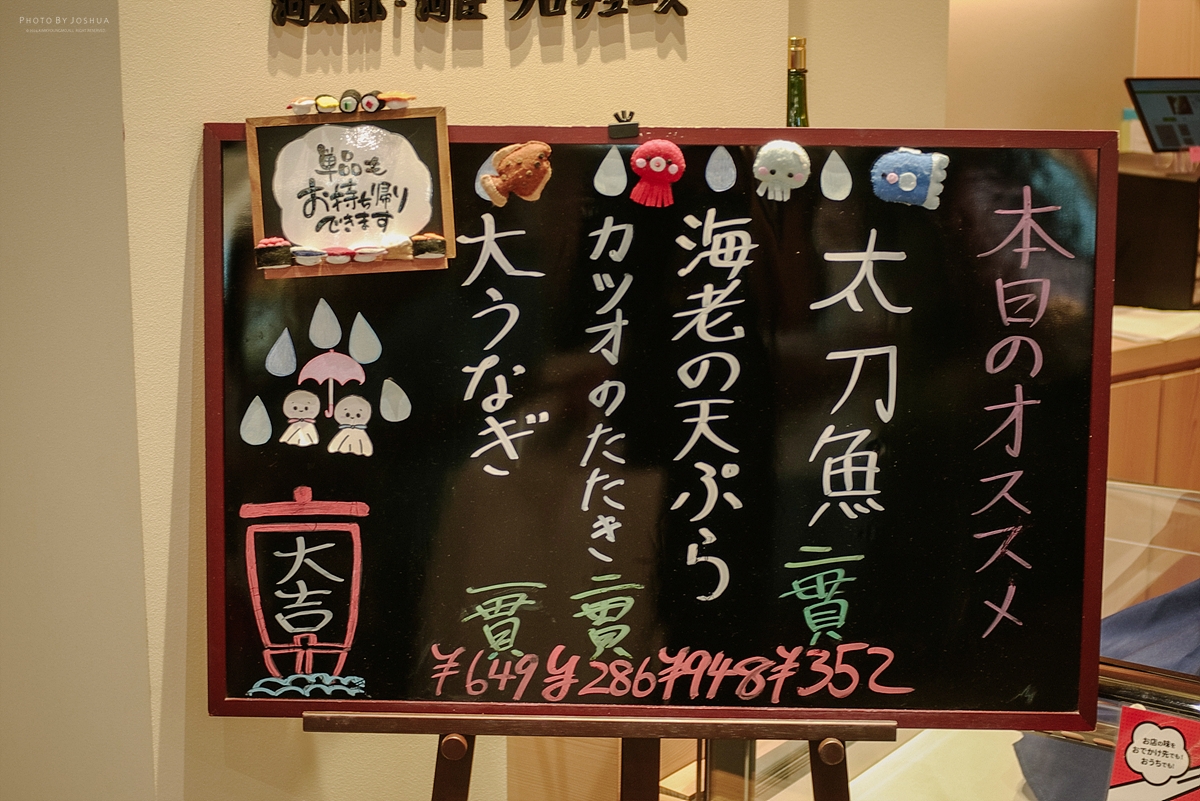 PHOTO BY JOSHUA
プロデュース
単品も
お持ち帰り
できます
本日のオススメ
太刀魚 二貫 ¥352
海老の天ぷら ¥948
カツオのたたき 二貫 ¥286
大うなぎ 一貫 ¥649
大吉
お店の味を
おでかけ先でも!
おうちでも!